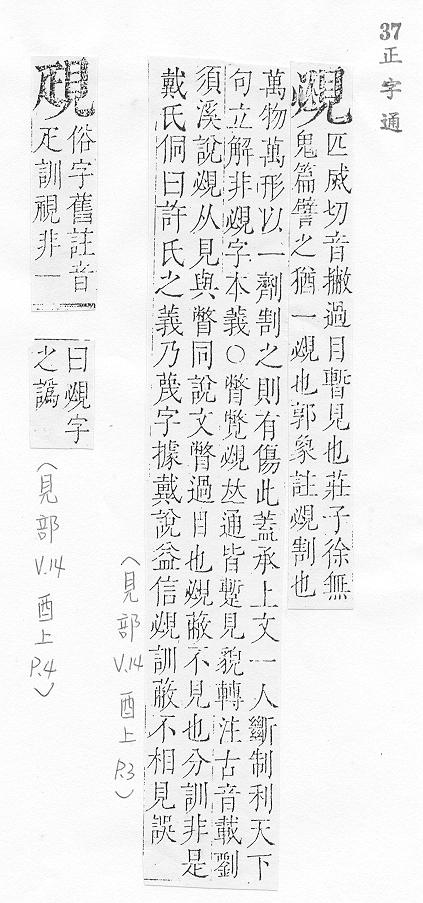 37 正字通
覕
匹烕切音撇過目暫見也莊子徐無
鬼篇譬之猶一覕也郭象註覕割也
萬物萬形以一劑制之則有傷此蓋承上文一人斷制利天下
句立解非覕字本義○瞥覕𠀤通皆蹔見貌轉注古音載劉
須溪說覕从見與瞥同說文瞥過目也覕蔽不見也分訓非是
戴氏侗曰許氏之義乃蔑字據戴說益信覕訓蔽不相見誤
(見部 V.14 酉上 P.3)
俗字舊註音
疋訓視非一
曰覕字
之譌
(見部 V.14 酉上 P.4)